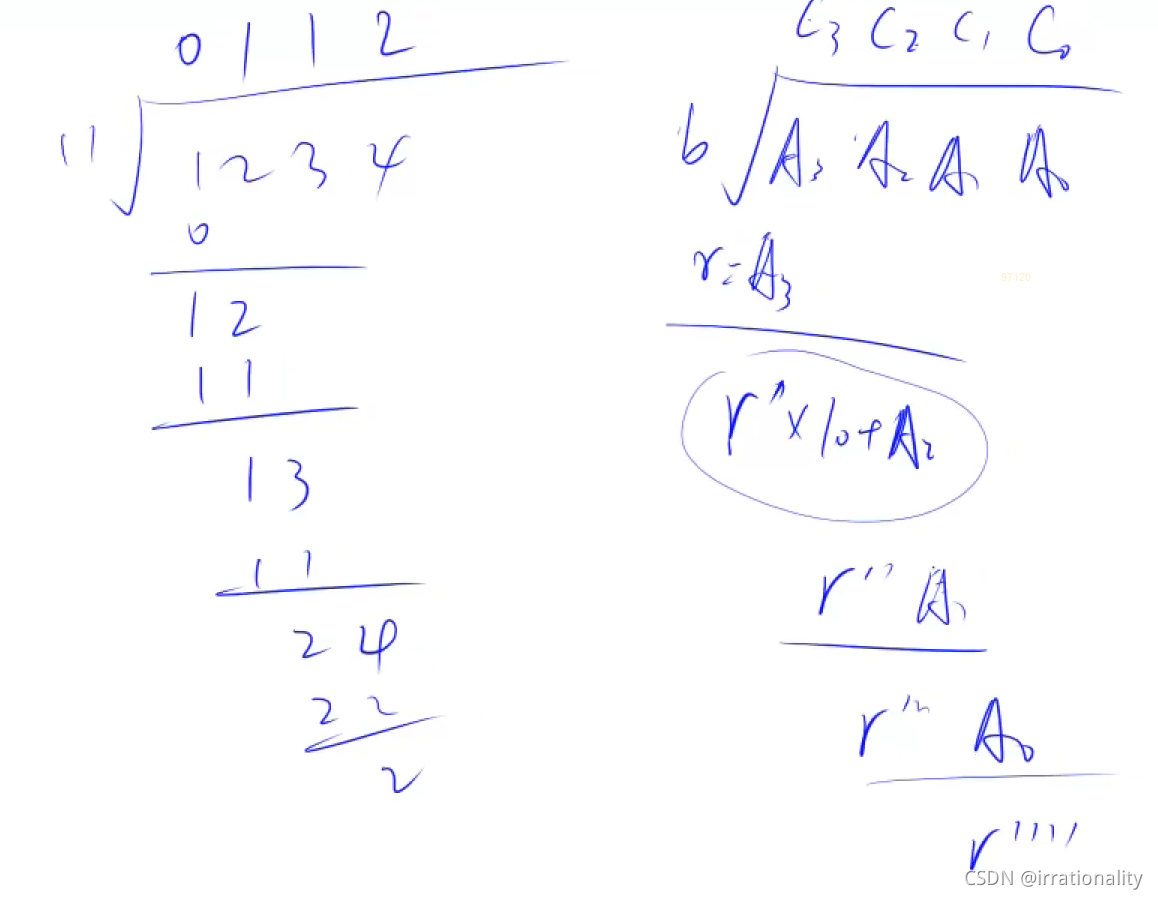 0 1 1 2
11 1 2 3 4
0
1 2
1 1
1 3
1 1
2 4
2 2
2
C₃ C₂ C₁ C₀
b A₃ A₂ A₁ A₀
r = A₃
r' × 10 + A₂
r'' A₁
r''' A₀
r''''
97120
CSDN @irrationality